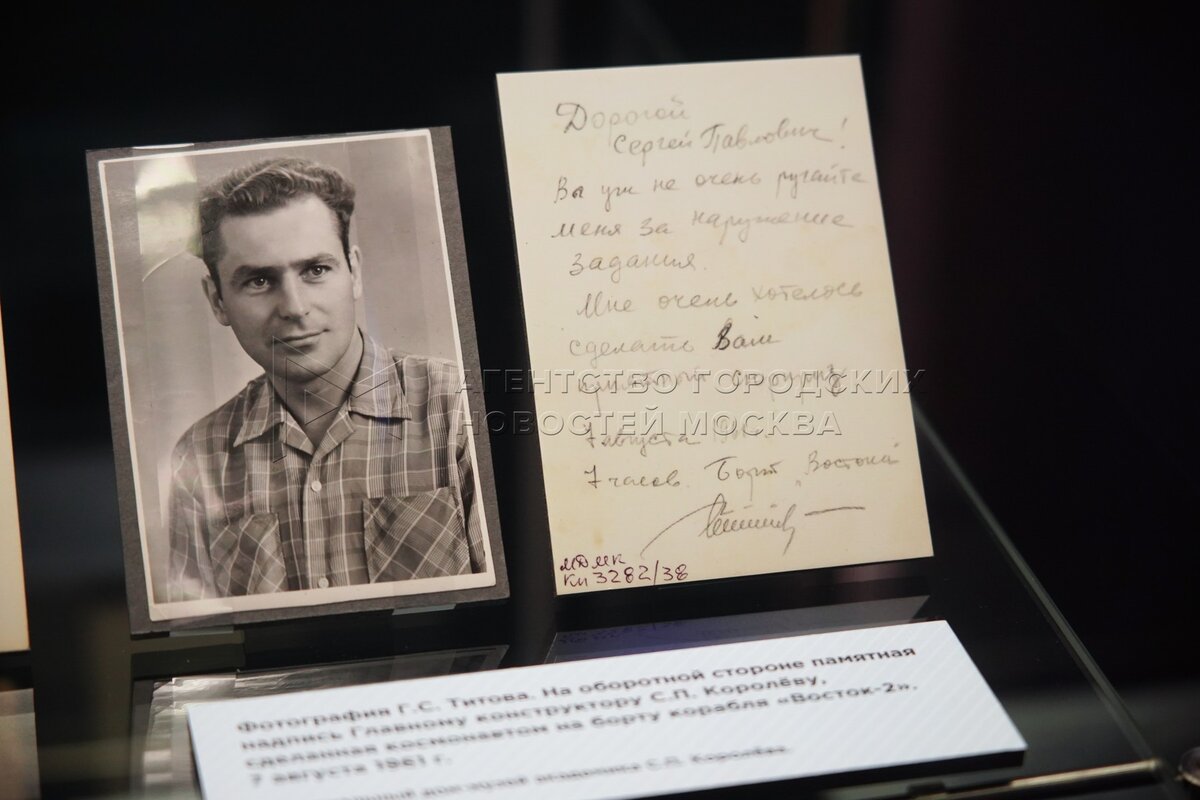 Дорогой
Сергей Павлович!
Вы уж не очень ругайте
меня за нарушение
задания.
Мне очень хотелось
сделать Вам
приятный сюрприз
АГЕНТСТВО ГОРОДСКИХ
НОВОСТЕЙ МОСКВА
7 августа
7 часов. Борт "Восток"
МДМК
КП 3282/38
Фотография Г.С. Титова. На оборотной стороне памятная
надпись Главному конструктору С.П. Королёву,
сделанная космонавтом на борту корабля «Восток-2».
7 августа 1961 г.
дом-музей академика С.П. Королёва